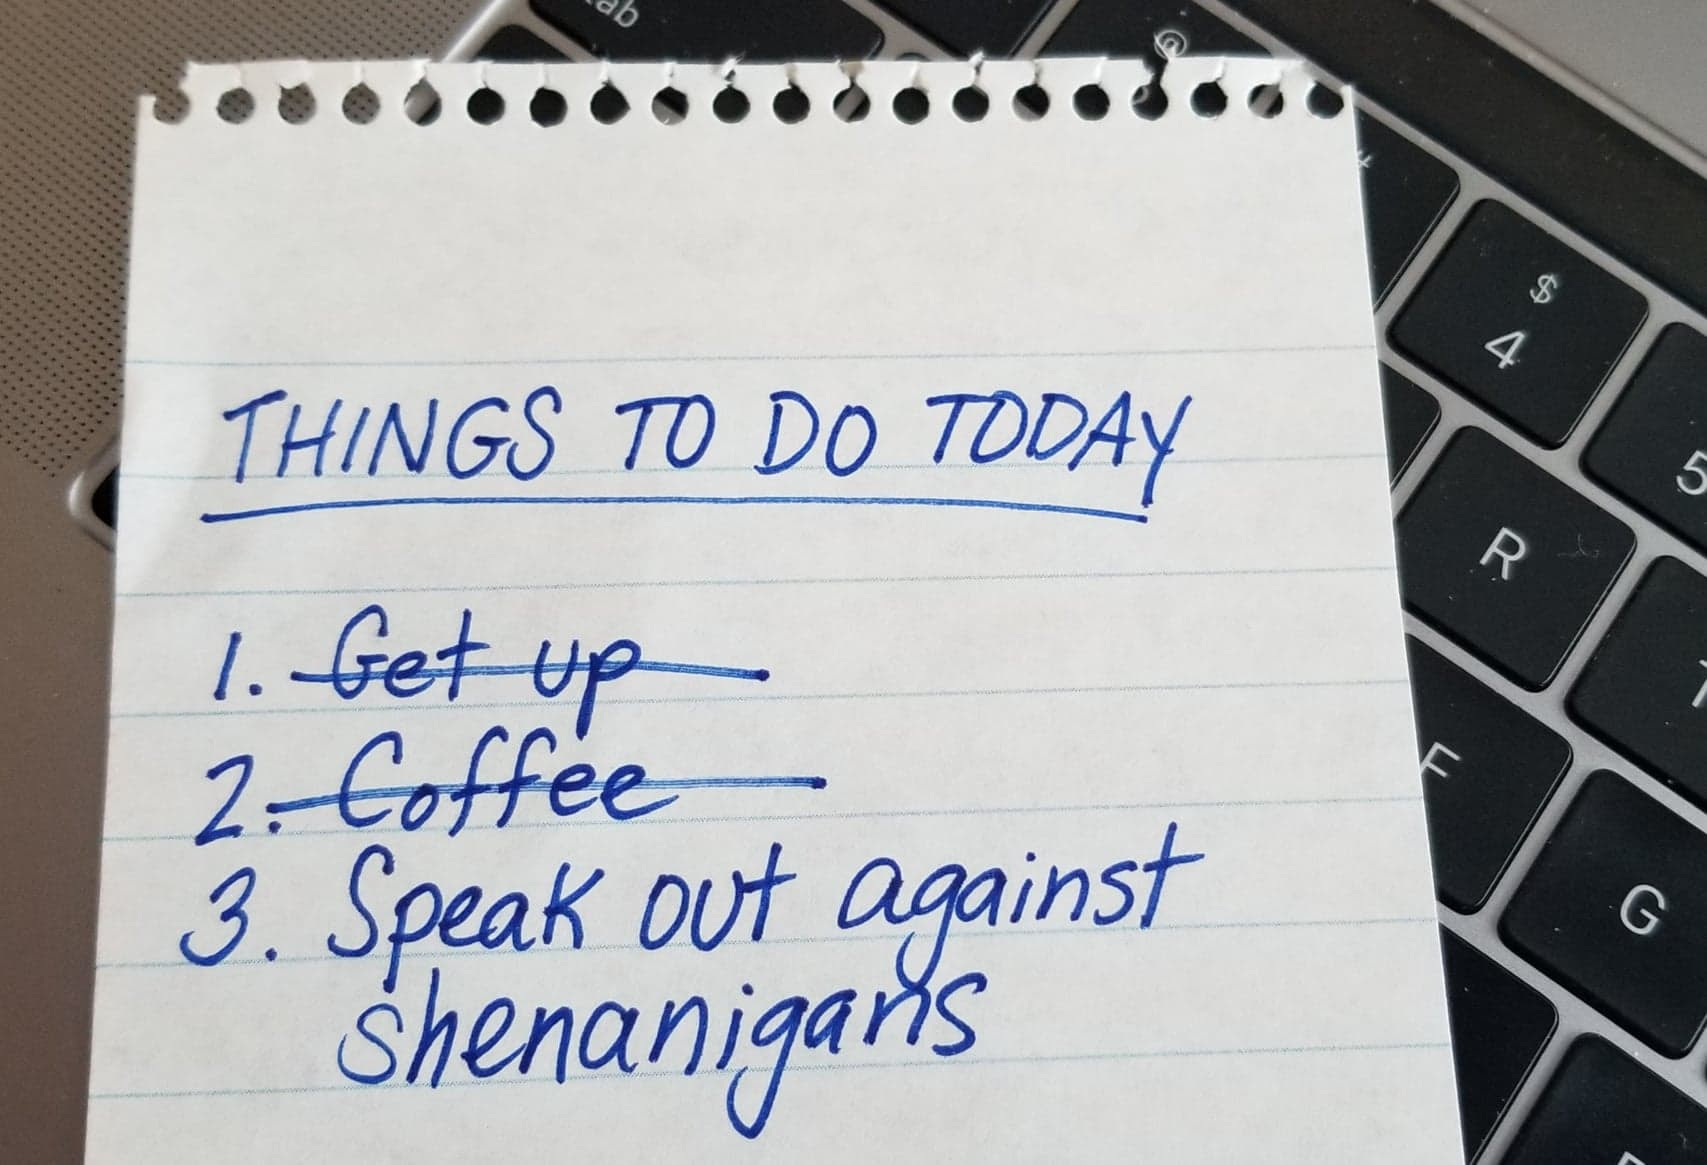 tab
@
#
$
4
5
R
F
G
THINGS TO DO TODAY
1. Get up
2. Coffee
3. Speak out against
shenanigans